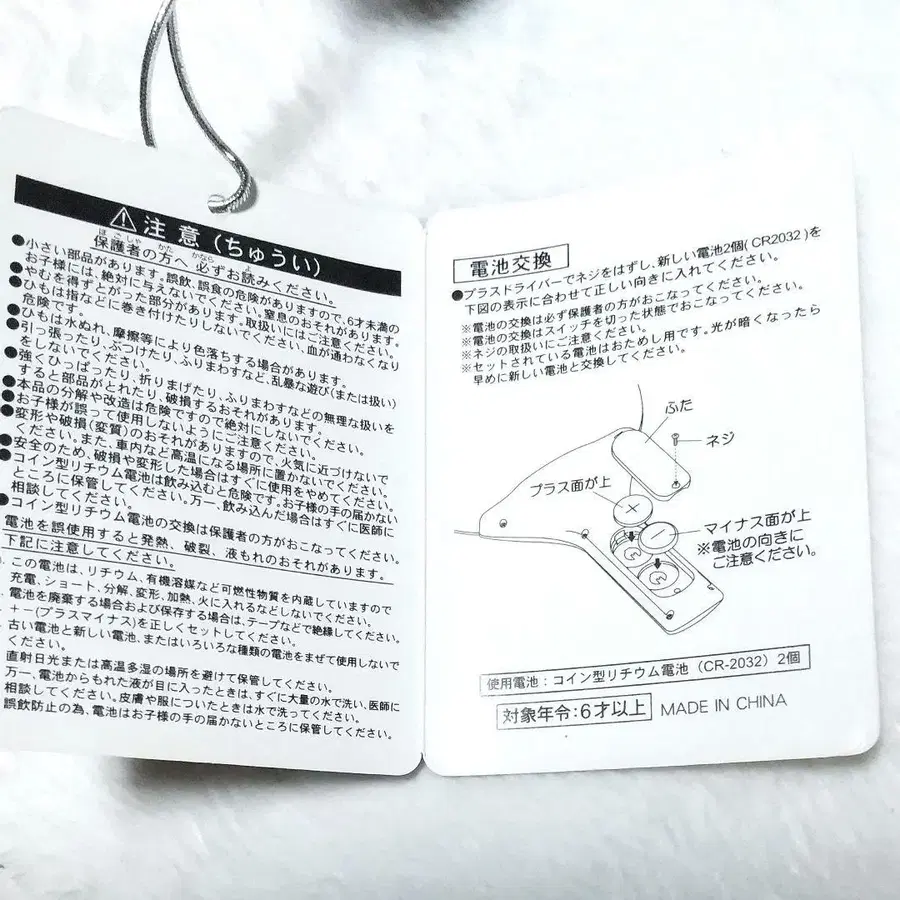 注意(ちゅうい)
ほごしゃ かた かなら よ
保護者の方へ 必ずお読みください。
●小さい部品があります。誤飲、誤食の危険がありますので、6才未満の
お子様には、絶対に与えないでください。窒息のおそれがあります。
●やむを得ずとがった部分があります。取扱いにはご注意ください。
●ひもは指などに巻き付けたりしないでください、血が通わなくなり
危険です。
●ひもは水ぬれ、摩擦等により色落ちする場合があります。
●引っ張ったり、ぶつけたり、ふりまわすなど、乱暴な遊び(または扱い)
をしないでください。
●強くひっぱったり、折りまげたり、ふりまわすなどの無理な扱いを
すると部品がとれたり、破損するおそれがあります。
●本品の分解や改造は危険ですので絶対にしないでください。
●お子様が誤って使用しないようにご注意ください。
●変形や破損(変質)のおそれがありますので、火気に近づけないで
ください。また、車内など高温になる場所に置かないでください。
●安全のため、破損や変形した場合はすぐに使用をやめてください。
●コイン型リチウム電池は飲み込むと危険です。お子様の手の届かない
ところに保管してください。万一、飲み込んだ場合はすぐに医師に
相談してください。
●コイン型リチウム電池の交換は保護者の方がおこなってください。
電池を誤使用すると発熱、破裂、液もれのおそれがあります。
下記に注意してください。
この電池は、リチウム、有機溶媒など可燃性物質を内蔵していますので
充電、ショート、分解、変形、加熱、火に入れるなどしないでください。
電池を廃棄する場合および保存する場合は、テープなどで絶縁してください。
+−(プラスマイナス)を正しくセットしてください。
古い電池と新しい電池、またはいろいろな種類の電池をまぜて使用しないで
ください。
直射日光または高温多湿の場所を避けて保管してください。
万一、電池からもれた液が目に入ったときは、すぐに大量の水で洗い、医師に
相談してください。皮膚や服についたときは水で洗ってください。
誤飲防止の為、電池はお子様の手の届かないところに保管してください。
電池交換
●プラスドライバーでネジをはずし、新しい電池2個(CR2032)を
下図の表示に合わせて正しい向きに入れてください。
※電池の交換は必ず保護者の方がおこなってください。
※電池の交換はスイッチを切った状態でおこなってください。
※ネジの取扱いにご注意ください。
※セットされている電池はおためし用です。光が暗くなったら
早めに新しい電池と交換してください。
ふた
ネジ
プラス面が上
マイナス面が上
※電池の向きに
ご注意ください。
使用電池:コイン型リチウム電池(CR-2032)2個
対象年令:6才以上 MADE IN CHINA